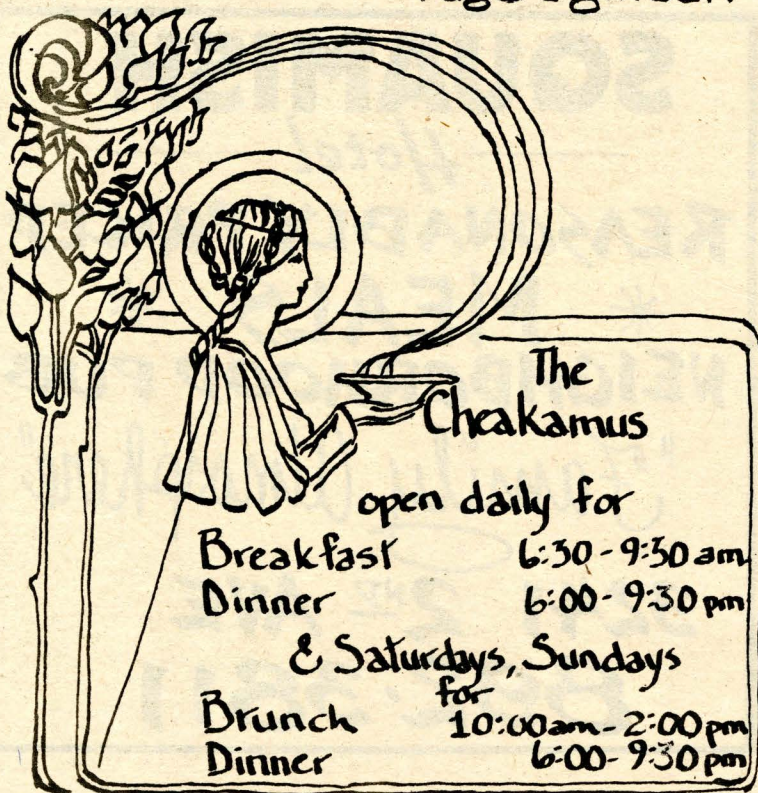 The
Cheakamus
open daily for
Breakfast 6:30 - 9:30 am
Dinner 6:00 - 9:30 pm
& Saturdays, Sundays
for
Brunch 10:00am - 2:00pm
Dinner 6:00 - 9:30 pm